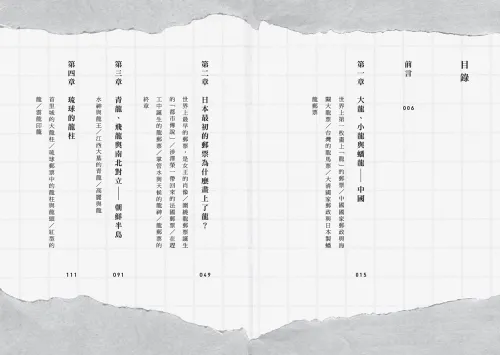 目錄
前言
006
第一章 大龍・小龍與蟠龍——中國
世界上第一枚畫上「龍」的郵票／中國國家郵政與海
關大龍票／台灣的龍馬票／大清國家郵政與日本製蟠
龍郵票
015
第二章 日本最初的郵票為什麼畫上了龍？
世界上最早的郵票，是女王的肖像／圍繞龍郵票誕生
的「都市傳說」／涉澤榮一帶回來的法國郵票／在趕
工中誕生的龍郵票／掌管水與天候的龍神／龍郵票的
終章
049
第三章 青龍・飛龍與南北對立——朝鮮半島
水神與龍王／江西大墓的青龍／高麗與龍
091
第四章 琉球的龍柱
首里城的大龍柱／琉球郵票中的龍柱與龍頭／紅型的
龍／雲龍印籠
111